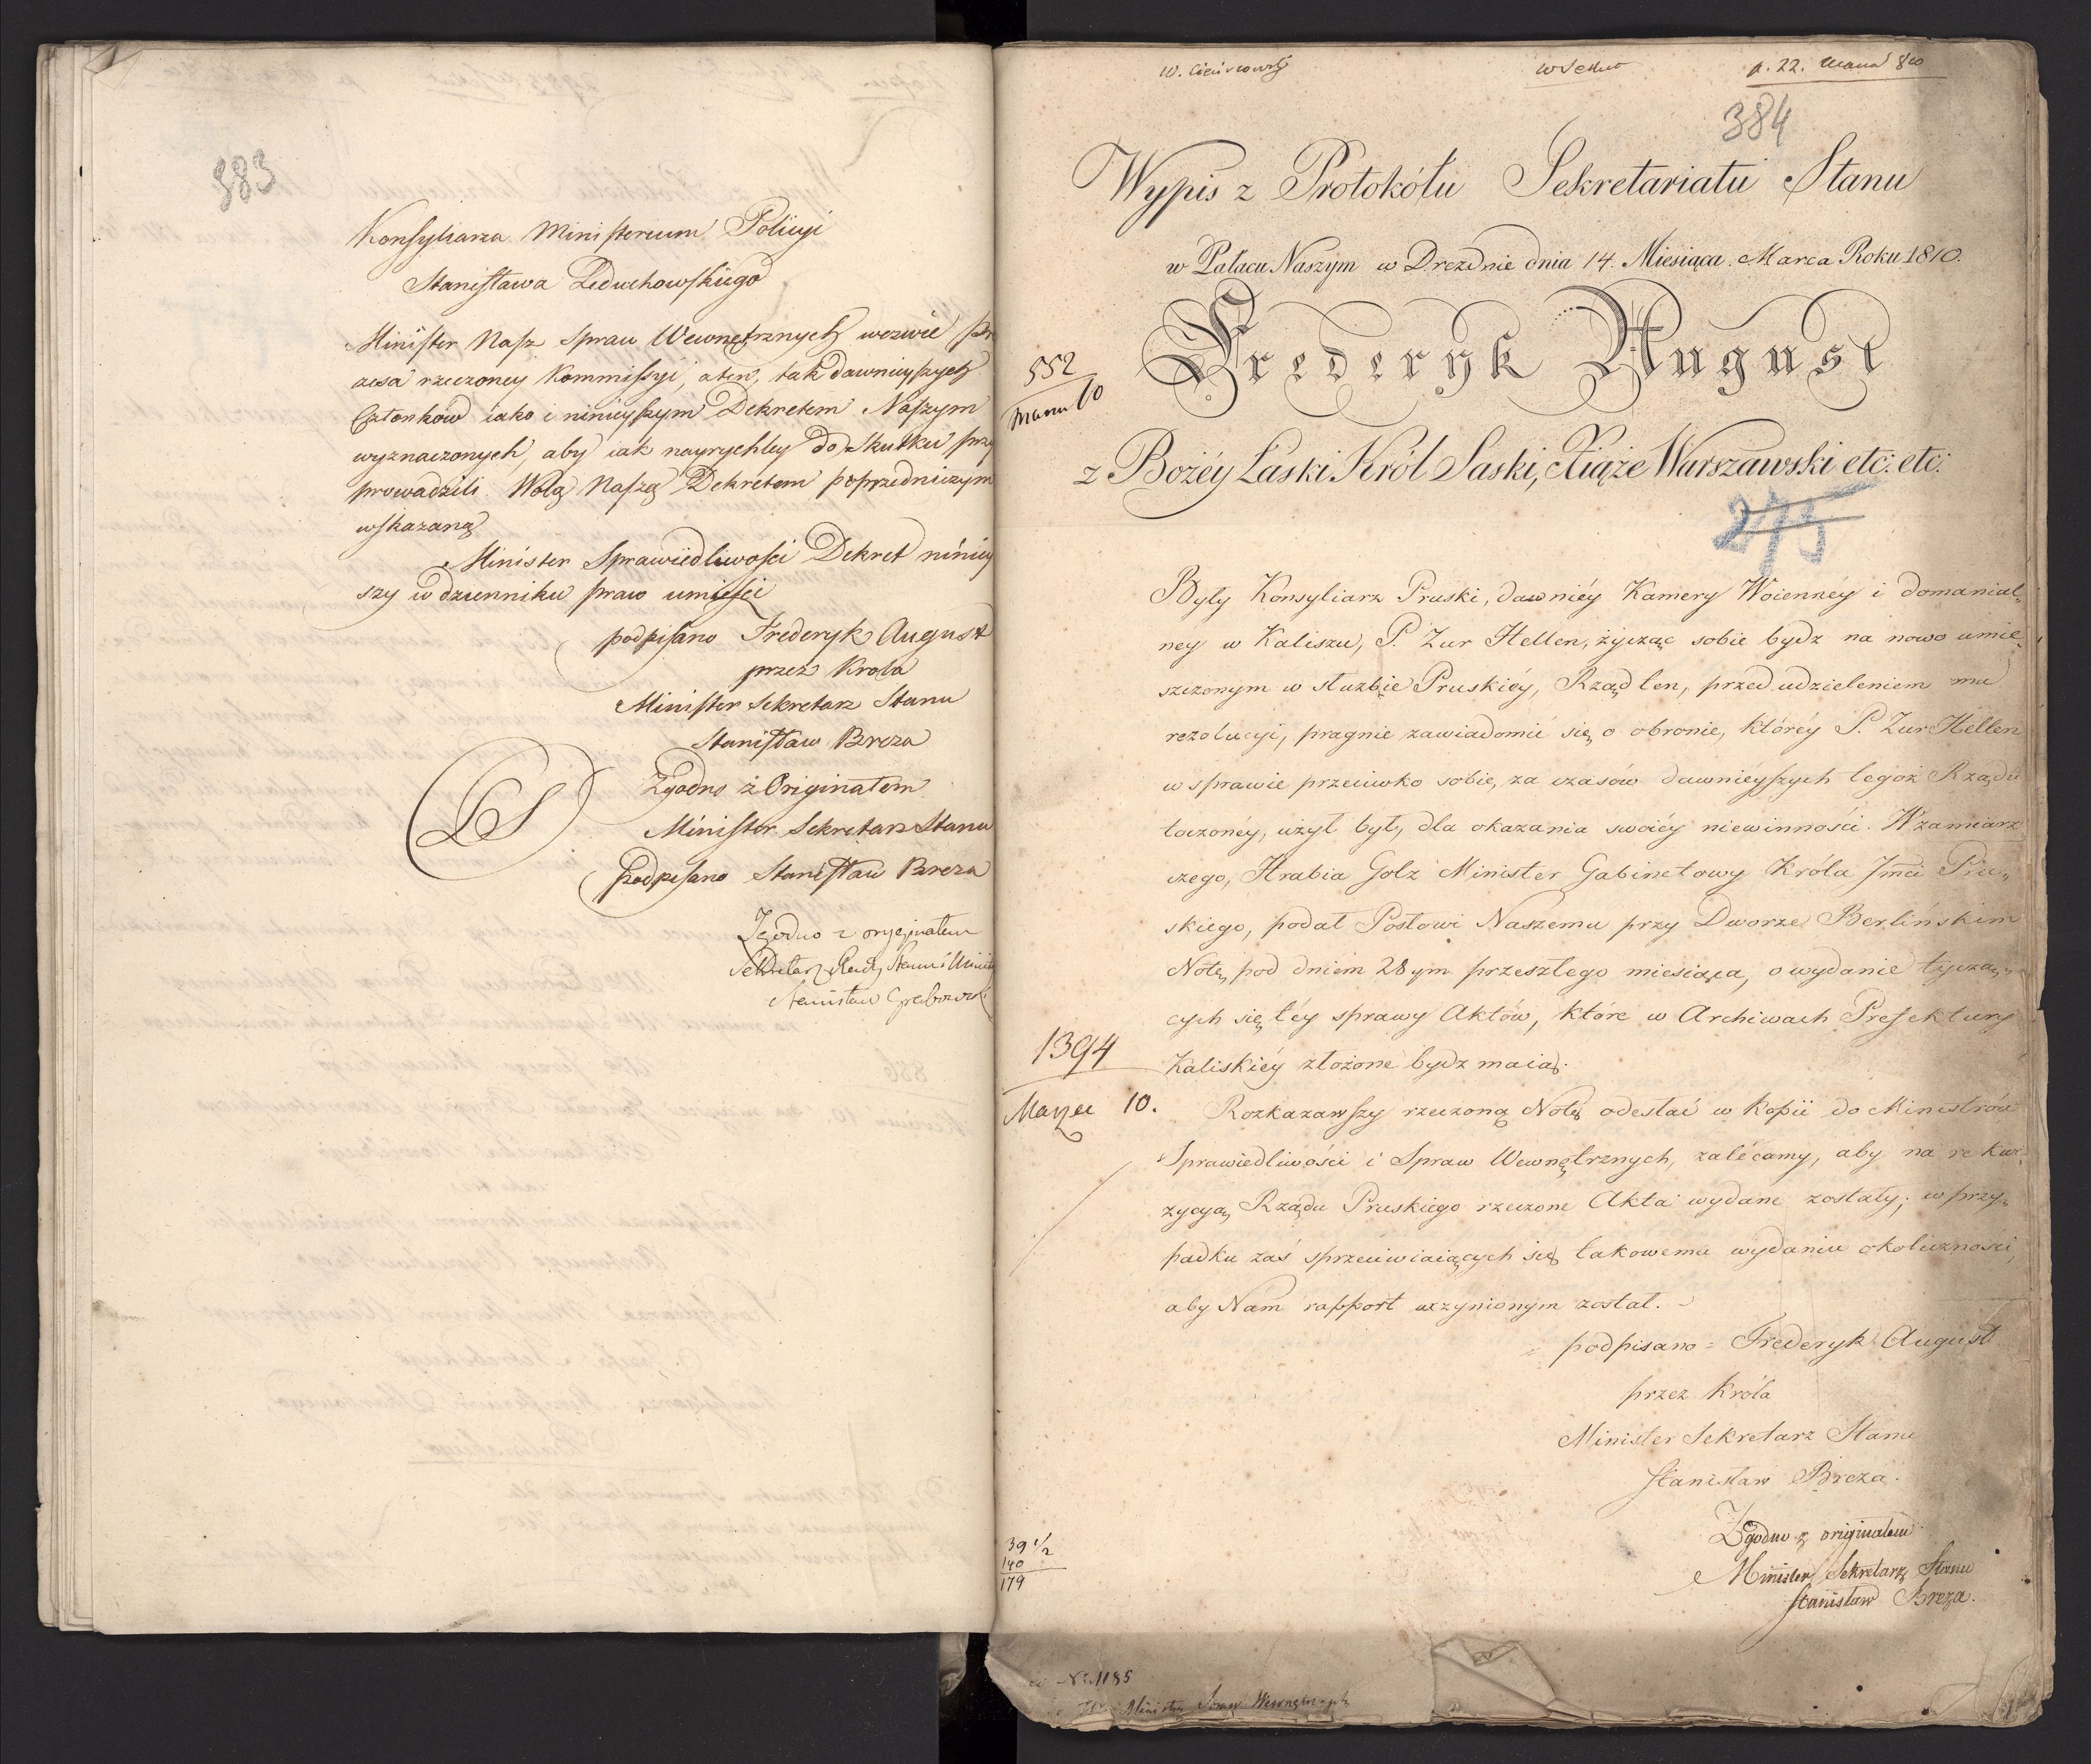 383
Konsyliarza Ministerium Policyi
Stanisława Leduchowskiego
Minister Nasz Spraw Wewnętrznych wezwie Pre
zesa rzeczoney Kommissyi, a ten, tak dawnieyszych
Członków iako i ninieyszym Dekretem Naszym
wyznaczonych, aby iak nayrychley do skutku przy
prowadzili Wolą Naszą Dekretem poprzedniczym
wskazaną
Minister Sprawiedliwości Dekret niniey
szy w dzienniku praw umieści
podpisano Fryderyk August
przez Krola
Minister Sekretarz Stanu
Stanisław Breza
LS
Zgodno z Originałem
Minister Sekretarz Stanu
podpisano Stanisław Breza
Zgodno z oryginałem
Sekretarz Rady Stanu i Minis
Stanisław Grabowski
W Sekret
p. 22. Marca 810
384
Wypis z Protokółu Sekretariatu Stanu
w Pałacu Naszym w Dreźnie dnia 14. Miesiąca Marca Roku 1810.
552
Marca 10
Frederyk August
z Bożéy Łaski Król Saski, Xiąże Warszawski etc: etc:
275
Były Konsyliarz Pruski, dawniéy Kamery Woiennéy i domanial„
ney w Kaliszu, P. Zur Hellen, życząc sobie bydz na nowo umie„
szczonym w służbie Pruskiéy, Rząd ten, przed udzieleniem mu
rezolucyi, pragnie zawiadomić się o obronie, któréy P. Zur Hellen
w sprawie przeciwko sobie, za czasów dawniéyszych tegoż Rządu
toczonéy, użył był, dla okazania swoiéy niewinności. W zamiarze
czego, Hrabia Golz Minister Gabinetowy Króla Jmci Pru„
skiego, podał Posłowi Naszemu przy Dworze Berlińskim
Notę pod dniem 28ym przeszłego miesiąca, o wydanie tyczą„
cych się téy sprawy Aktów, które w Archiwach Prefektury
Kaliskiéy złożone bydz maią.
1394
Marzec 10.
Rozkazawszy rzeczoną Notę odesłać w kopii do Ministrów
Sprawiedliwości i Spraw Wewnętrznych, zalécamy, aby na rekwi„
zycyą Rządu Pruskiego rzeczone Akta wydane zostały; w przy„
padku zaś sprzeciwiaiących się takowemu wydaniu okoliczności,
aby Nám rapport uczynionym został.
podpisano = Frederyk August
przez Króla
Minister Sekretarz Stanu
Stanisław Breza.
Zgodno z originałem
Minister Sekretarz Stanu
Stanisław Breza.
39 1/2
140
179
No. 1185
Ministra Spraw Wewnętrznych